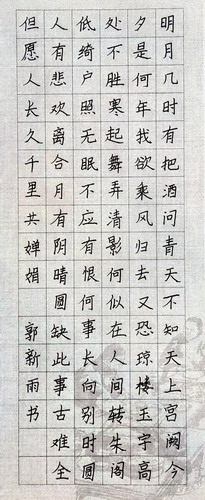 明月几时有把酒问青天不知天上宫阙今
夕是何年我欲乘风归去又恐琼楼玉宇高
处不胜寒起舞弄清影何似在人间转朱阁
低绮户照无眠不应有恨何事长向别时圆
人有悲欢离合月有阴晴圆缺此事古难全
但愿人长久千里共婵娟
郭新雨书